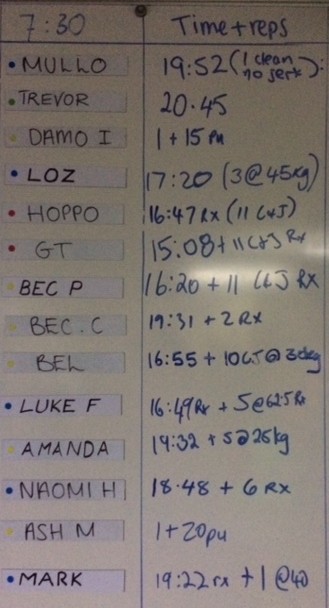 7:30 Time+reps
MULLO 19:52 (1 clean
no jerk)
TREVOR 20.45
DAMO I 1 + 15 pu
LOZ 17:20 (3@45kg)
HOPPO 16:47 Rx (11 C+J)
GT 15:08 + 11 C+J Rx
BEC P 16:20 + 11 C+J Rx
BEC.C 19:31 + 2 Rx
BEL 16:55 + 10 CJ @
LUKE F 16:49 Rx + 5@62.5 Rx
AMANDA 19:32 + 5@25kg
NAOMI H 18.48 + 6 Rx
ASH M 1+20pu
MARK 19:22 rx + 1 @40